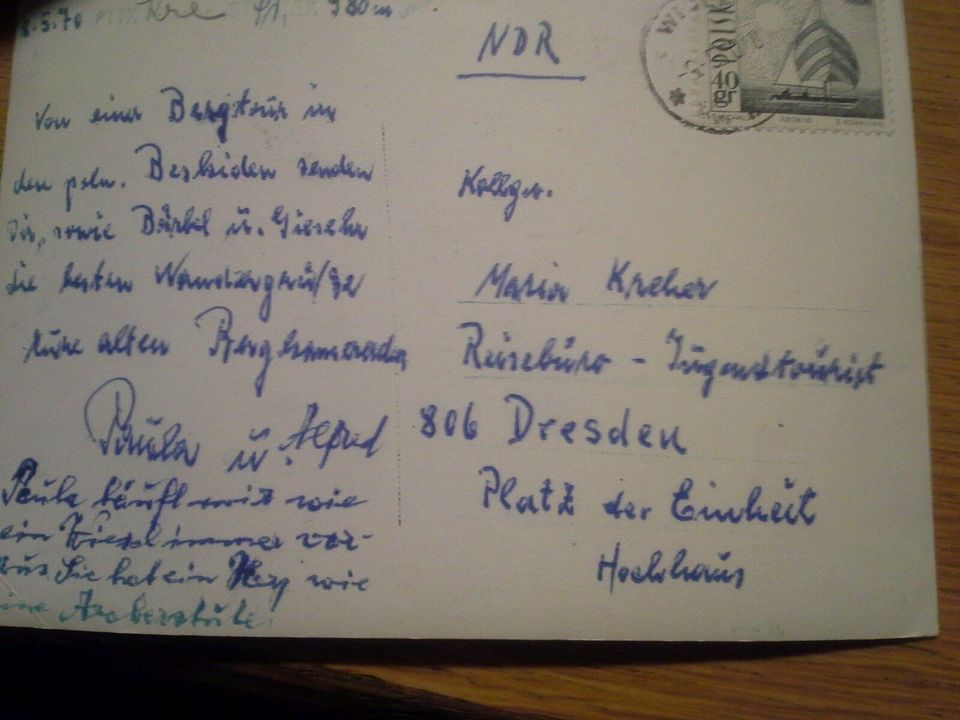 8.5.70
980m
NDR
POLSKA
40
gr
Von einer Bergtour in
den poln. Beskiden senden
Dir, sowie Bärbel u. Giesela
die besten Wandergrüße
Eure alten Bergkameraden
Paula u. Alfred
Paula läuft mir wie
ein Wiesel immer vor-
aus Sie hat ein Herz wie
eine Araberstute.
Kollgn.
Maria Kreher
Reisebüro - Jugendtourist
806 Dresden
Platz der Einheit
Hochhaus